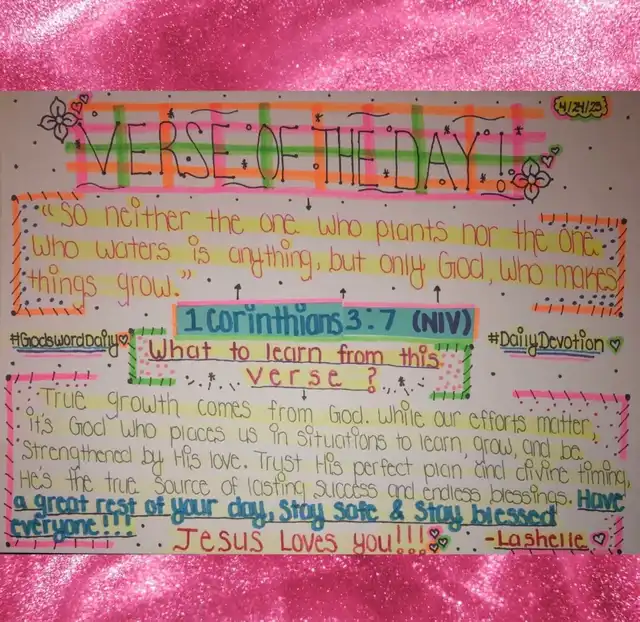 4/24/25
VERSE OF THE DAY!
"So neither the one who plants nor the one
who waters is anything, but only God, who makes
things grow."
1 Corinthians 3:7 (NIV)
#GodswordDaily #DailyDevotion
What to learn from this
verse?
True growth comes from God. While our efforts matter,
it's God who places us in situations to learn, grow, and be
strengthened by His love. Trust His perfect plan and divine timing,
He's the true source of lasting success and endless blessings. Have
a great rest of your day, Stay safe & Stay blessed
everyone!!!
Jesus Loves you!!!
-Lashelle